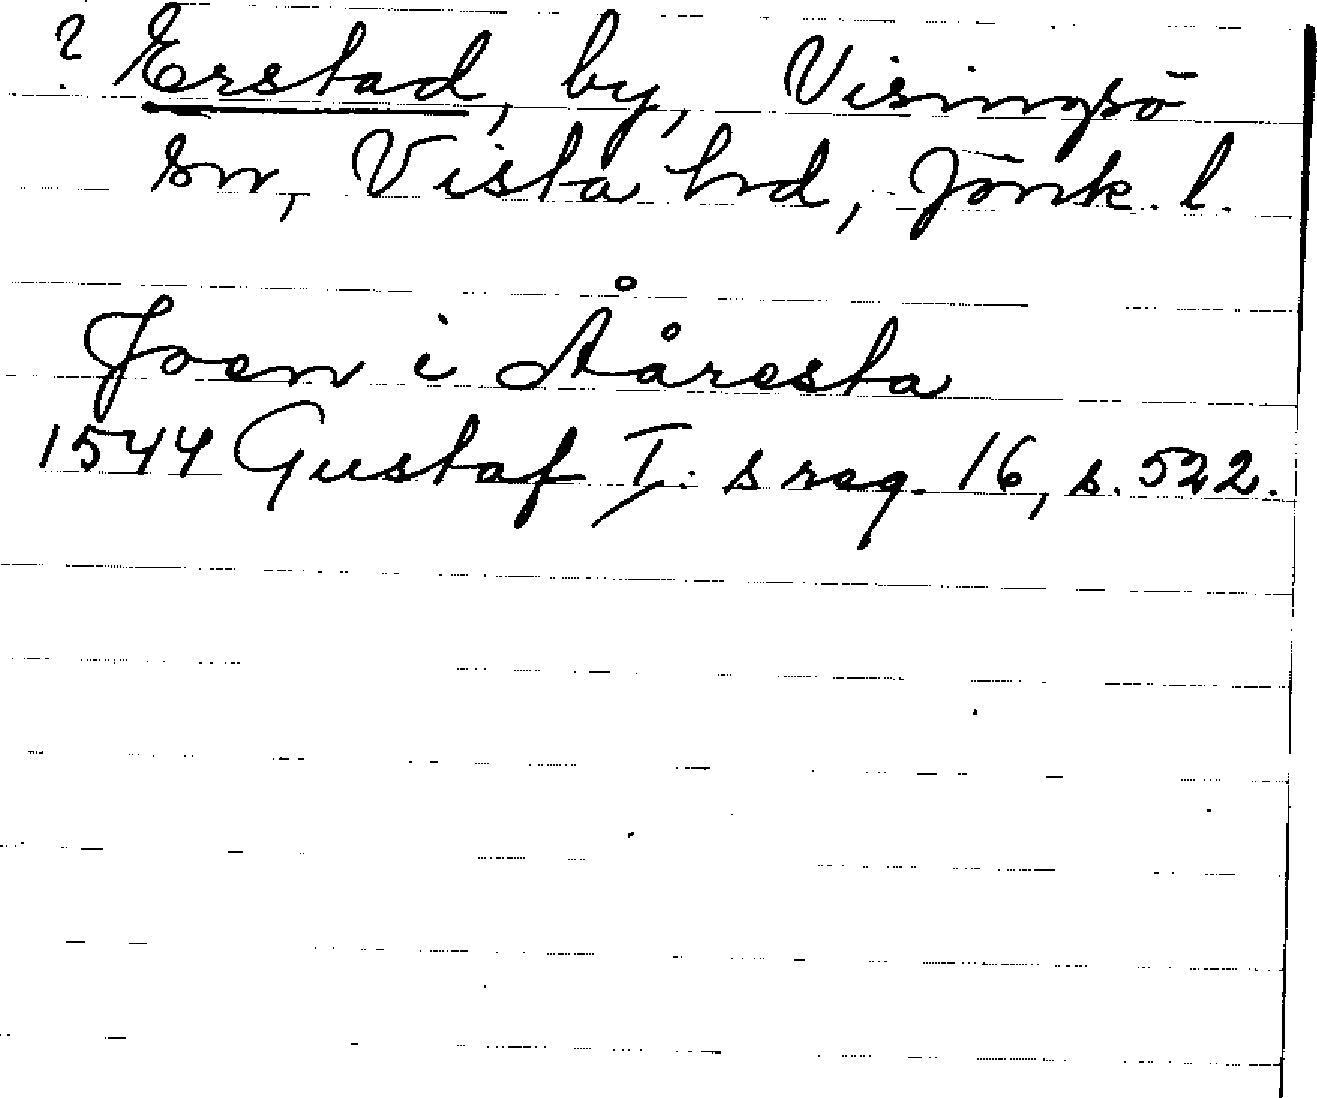 ? Erstad, by, Visingsö
sn, Vista hd, Jönk. l.
Joen i Ååresta
1544 Gustaf I:s reg. 16, s. 522.